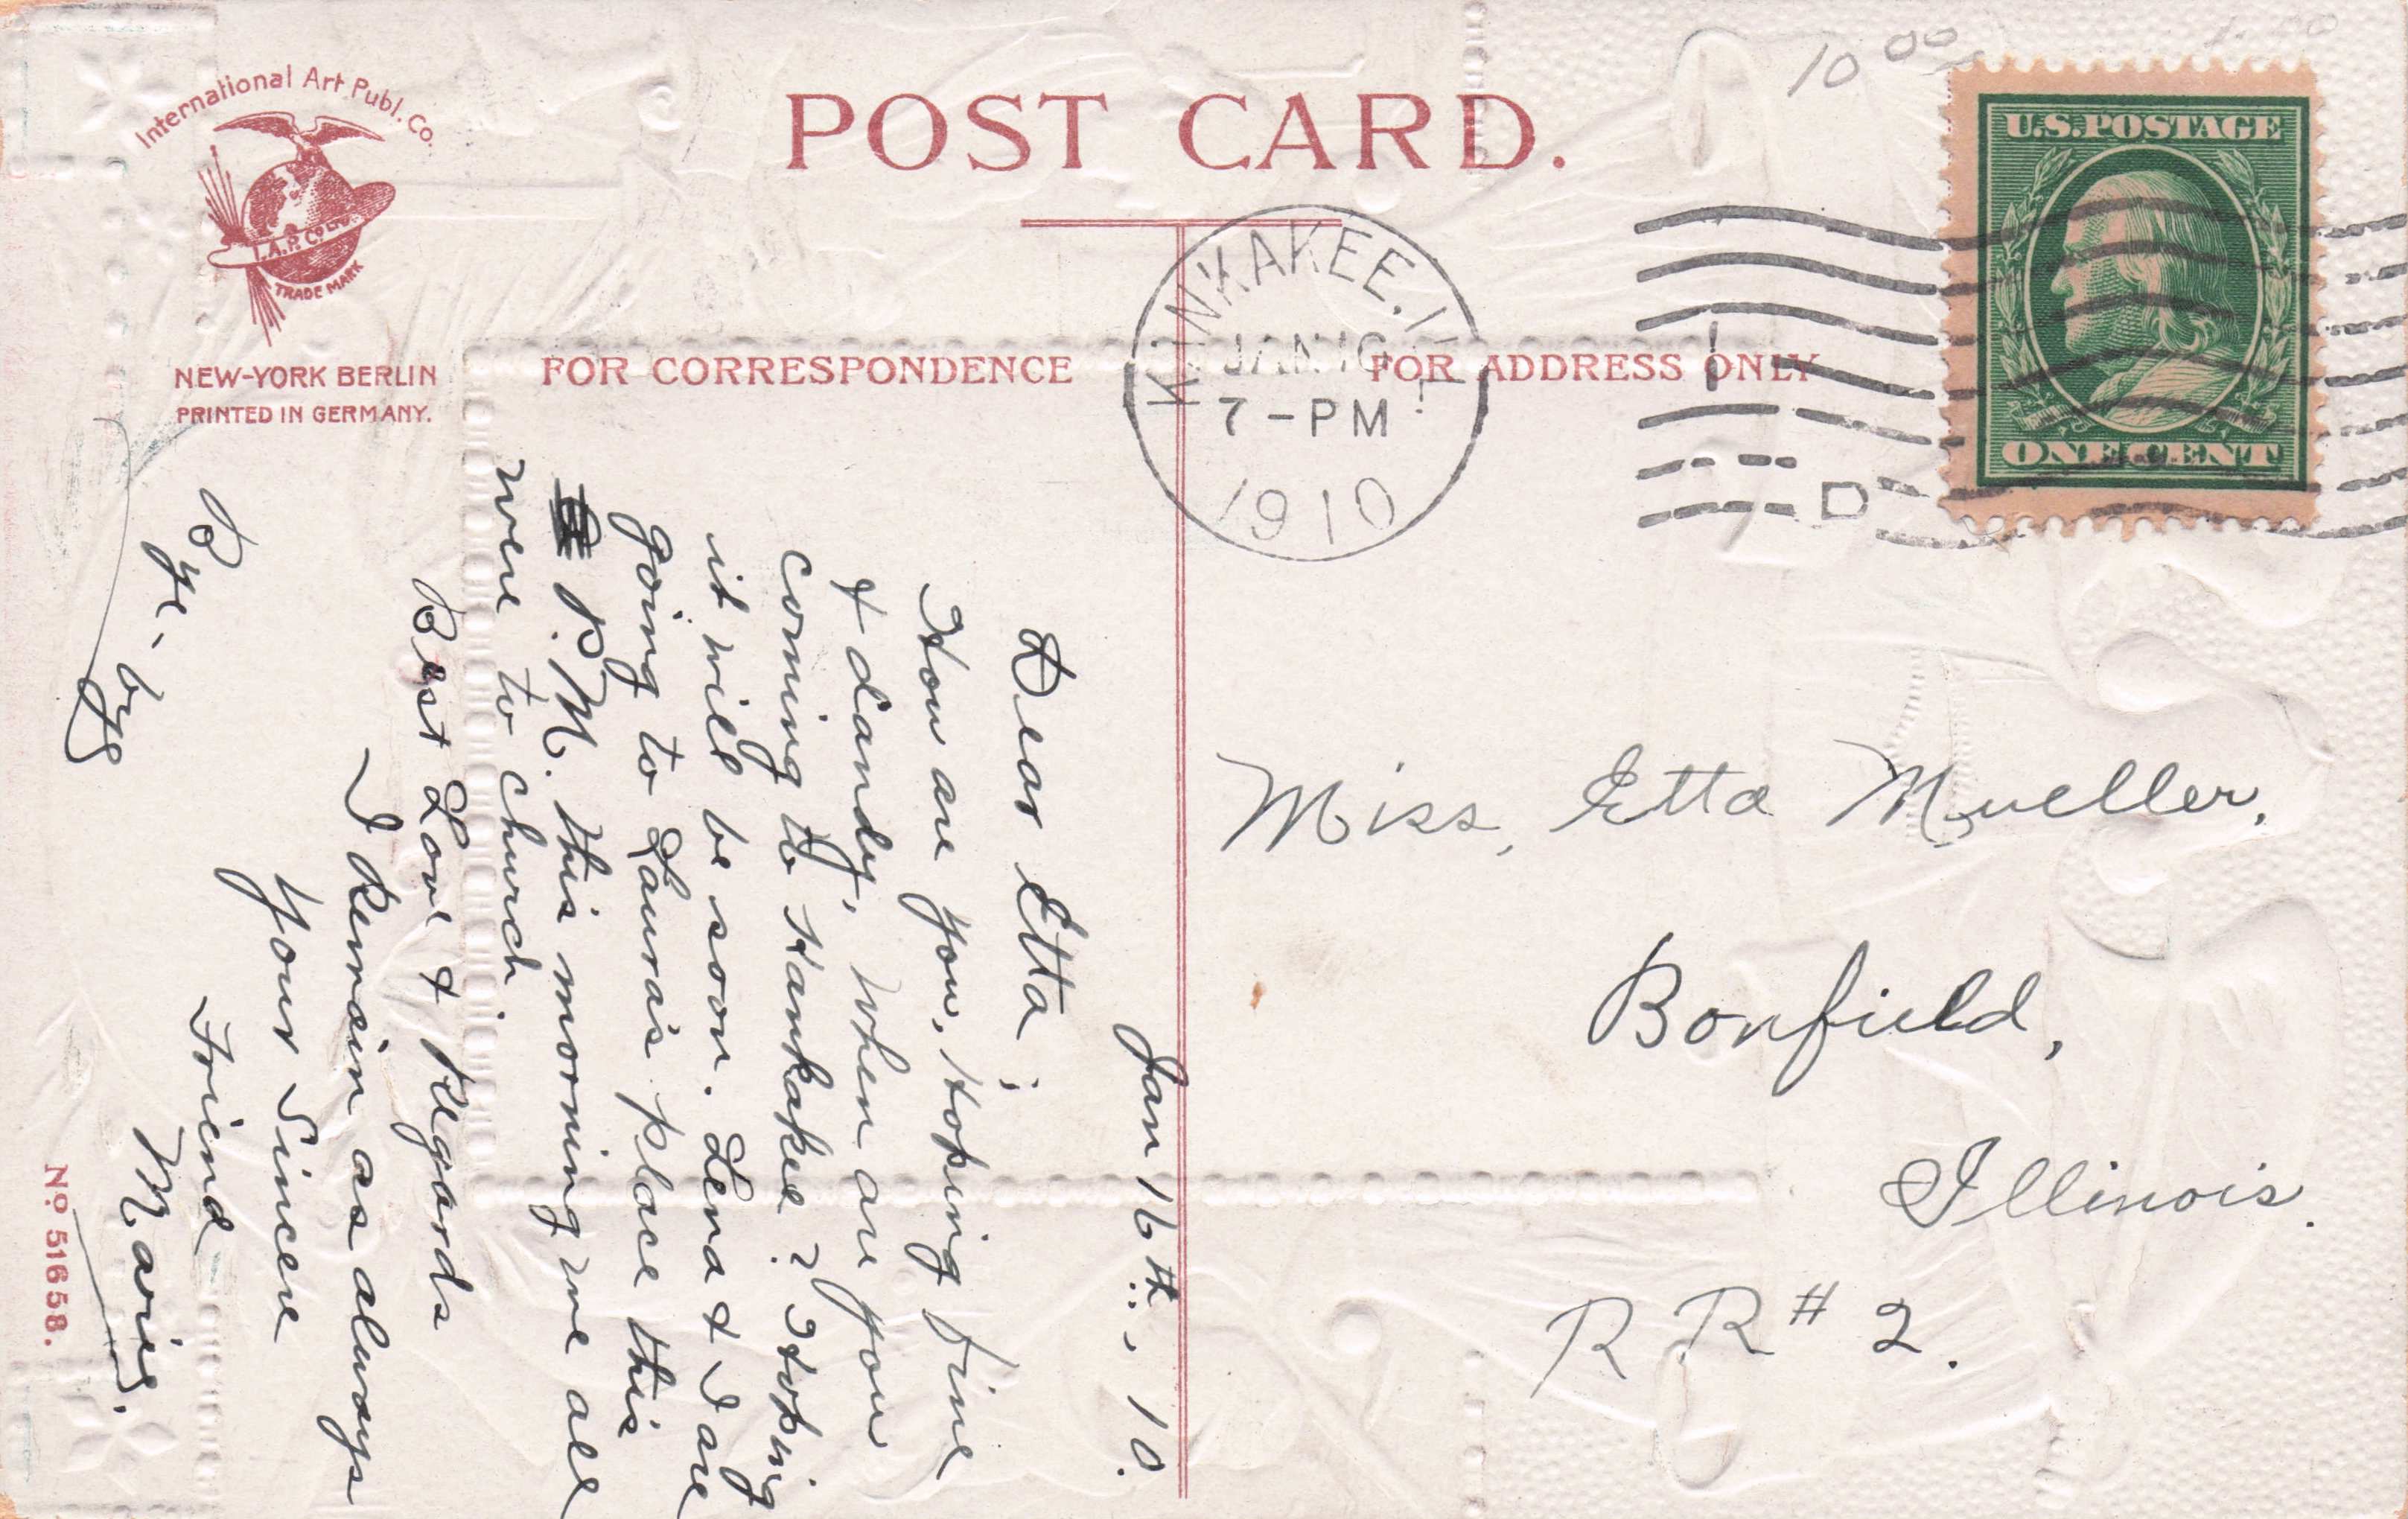 10 00
International Art Publ. Co.
I.A.P. Co Ltd.
TRADE MARK
NEW-YORK BERLIN
PRINTED IN GERMANY.
POST CARD.
FOR CORRESPONDENCE
FOR ADDRESS ONLY
KANKAKEE, ILL.
JAN 16
7-PM
1910
D
U.S. POSTAGE
ONE CENT
Jan 16th., 10.
Dear Etta;
How are you, Hoping fine
& dandy, When are you
coming to Kankakee? Hoping
it will be soon. Lena & I are
going to Laura's place this
P.M. this morning we all
were to church.
Best Love & Regards
I Remain as always
Your Sincere
Friend
Marie.
Bye-bye
Miss, Etta Mueller,
Bonfield,
Illinois.
R R # 2.
No 51658.